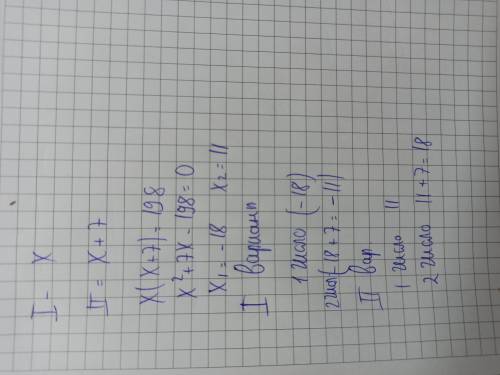 I - X
II = X + 7
X(X+7)=198
X²+7X-198=0
X₁=-18 X₂=11
I вариант
1 число (-18)
2 число(-18+7=-11)
II вар
1 число 11
2 число 11+7=18